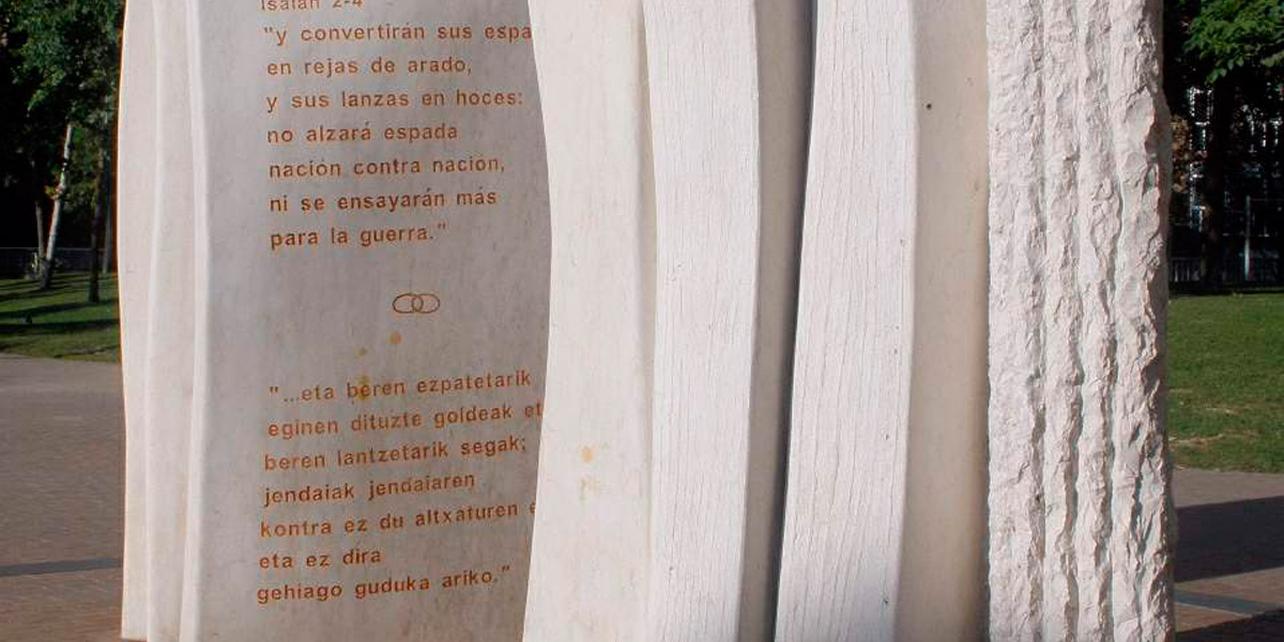 Isaían 2-4
"y convertirán sus espa
en rejas de arado,
y sus lanzas en hoces:
no alzará espada
nación contra nación,
ni se ensayarán más
para la guerra."
"...eta beren ezpatetarik
eginen dituzte goldeak et
beren lantzetarik segak;
jendaiak jendaiaren
kontra ez du altxaturen e
eta ez dira
gehiago guduka ariko."